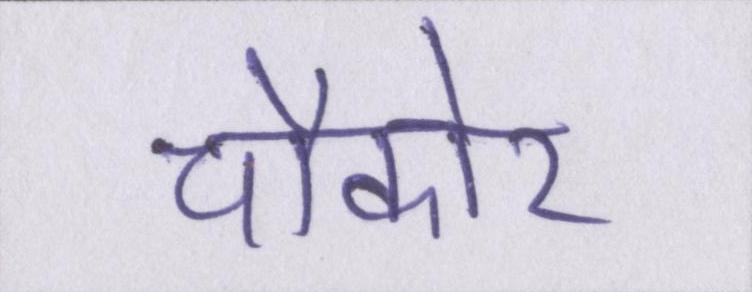 चौकोर